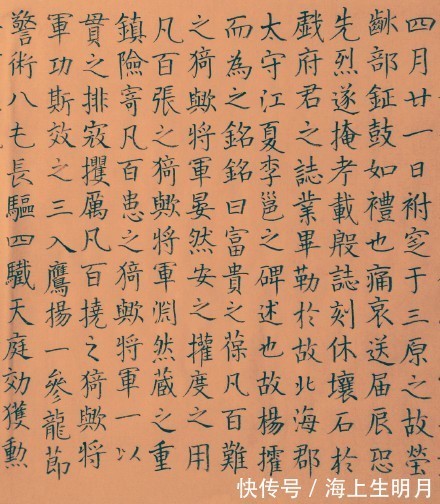 四月廿一日祔窆于三原之故塋
部鉦鼓如禮也痛哀送届辰恐
先烈遂掩考載殷誌刻休壤石於
戱府君之誌業畢勒於故北海郡
太守江夏李邕之碑述也故楊搉
而為之銘銘曰富貴之葆凡百難
之猗歟將軍晏然安之搉度之用
凡百張之猗歟將軍淵然蔵之重
鎮險寄凡百患之猗歟將軍一以
貫之排寇攫厲凡百撓之猗歟將
軍功斯效之三入鷹揚一參龍節
警術八長驅四驖天庭効獲勲
快传号/海上生明月